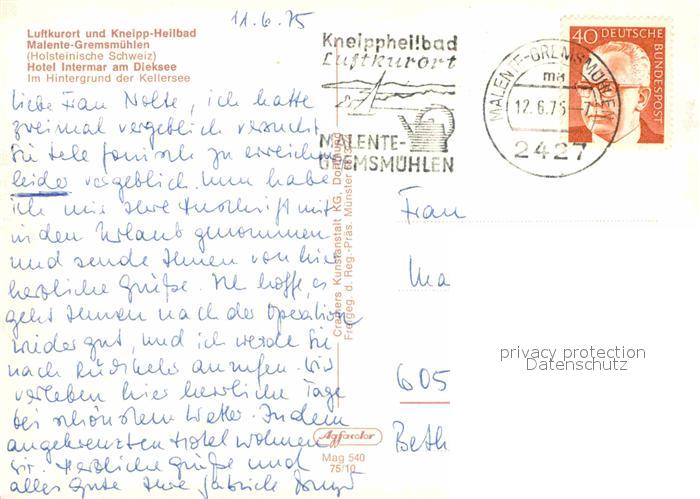 11.6.75
Luftkurort und Kneipp-Heilbad
Malente-Gremsmühlen
(Holsteinische Schweiz)
Hotel Intermar am Dieksee
Im Hintergrund der Kellersee
Liebe Frau Nolte, ich hatte
zweimal vergeblich versucht
Sie telefonisch zu erreichen
leider vergeblich. Nun habe
ich mir Ihre Anschrift mit
in den Urlaub genommen
und sende Ihnen von hier
herzliche Grüße. Ich hoffe, es
geht Ihnen nach der Operation
wieder gut, und ich werde Sie
nach Rückkehr anrufen. Wir
verleben hier herrliche Tage
bei schönstem Wetter. In dem
angekreuzten Hotel wohnen
wir. Herzliche Grüße und
alles Gute Ihre Gabriele
Kneippheilbad
Luftkurort
MALENTE-
GREMSMÜHLEN
MALENTE-GREMSMÜHLEN
ma
12.6.75
2427
40 DEUTSCHE
BUNDESPOST
Cramers Kunstanstalt KG, Dortmund
Freigeg. d. Reg.-Präs. Münster
Agfacolor
Mag 540
75/10
Frau
605
privacy protection
Datenschutz